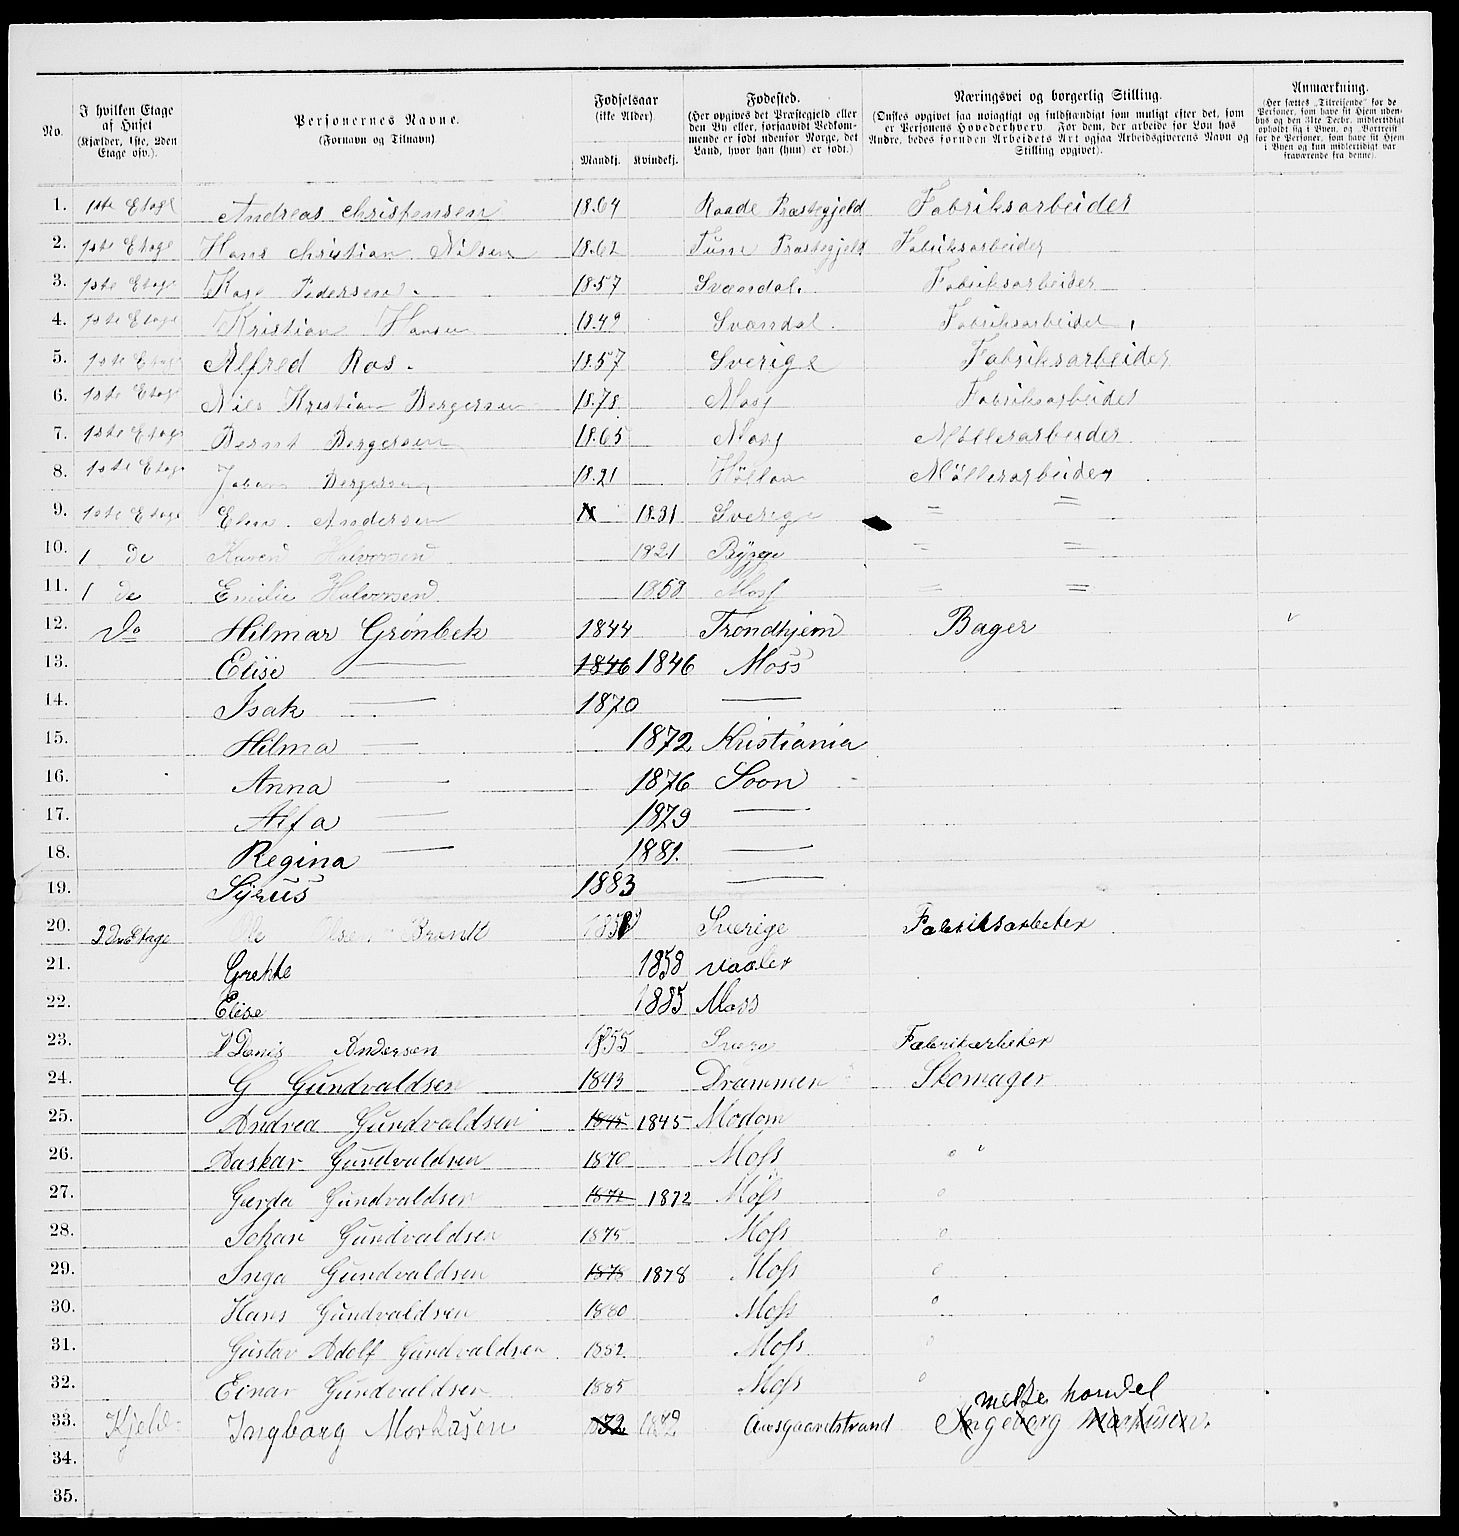 No. | I hvilken Etage af Huset (Kjælder, 1ste, 2den Etage osv.). | Personernes Navne. (Fornavn og Tilnavn) | Fødselsaar (ikke Alder). Mandkj. | Kvindekj. | Fødested. (Her opgives det Præstegjeld eller den By eller, forsaavidt Vedkommende er født udenfor Norge, det Land, hvor han (hun) er født.) | Næringsvei og borgerlig Stilling. (Ønskes opgivet saa nøiagtigt og fuldstændigt som muligt efter det, som er Personens Hovederhverv. For dem, der arbeide for Løn hos Andre, bedes foruden Arbeidets Art ogsaa Arbeidsgiverens Navn og Stilling opgivet). | Anmærkning. (Her sættes „Tilreisende" for de Personer, som have sit Hjem udenbys og den 31te Decbr. midlertidigt opholdt sig i Byen, og „Bortreist" for de Personer, som have sit Hjem i Byen og kun midlertidigt var fraværende fra denne).
1. 1ste Etage Andreas Christensen 1864 Raade Præstegjeld Fabriksarbeider
2. 1ste Etage Hans Christian Nilsen 1862 Tune Præstegjeld Fabriksarbeider
3. 1ste Etage Pedersen 1857 Svændal Fabriksarbeider
4. 1ste Etage Kristian Hansen 1849 Svændal Fabriksarbeider
5. 1ste Etage Alfred Ros 1857 Sverige Fabriksarbeider
6. 1ste Etage Nils Kristian Bergersen 1878 Moss Fabriksarbeider
7. 1ste Etage Bernt Bergersen 1865 Moss Møllerarbeider
8. 1ste Etage Johan Bergersen 1821 Høllan Møllerarbeider
9. 1ste Etage Andersen 18 1831 Sverige = =
10. 1 do Karen Halvorsen 1821 Rygge = =
11. 1 do Emilie Halvorsen 1868 Moss = =
12. Do Hilmar Grønbek 1844 Trondhjem Bager
13. Elise — 1846 1846 Moss
14. Isak — 1870 —
15. Hilma — 1872 Kristiania
16. Anna — 1876 Soon
17. Alfa — 1879 —
18. Regina — 1881. —
19. Syrus 1883 —
20. 2den Etage Ole Olsen Brandt Sverige Fabriksarbeter
21. Grethe 1858 Vaaler
22. Elise 1885 Moss
23. Andersen 1855 Fabrikarbeter
24. G Gundvaldsen 1843 Drammen Skomager
25. Andrea Gundvaldsen 1845 1845 Modom
26. Aaskar Gundvaldsen 1870 Moss "
27. Gerda Gundvaldsen 1872 1872 Moss "
28. Johan Gundvaldsen 1875 Moss "
29. Inga Gundvaldsen 1878 1878 Moss "
30. Hans Gundvaldsen 1880 Moss "
31. Gustav Adolf Gundvaldsen 1882 Moss "
32. Einar Gundvaldsen 1885 Moss "
melke handel
33. Kjeld. Ingborg Markusen Aasgaardstrand Ingeborg Markusen
34.
35.